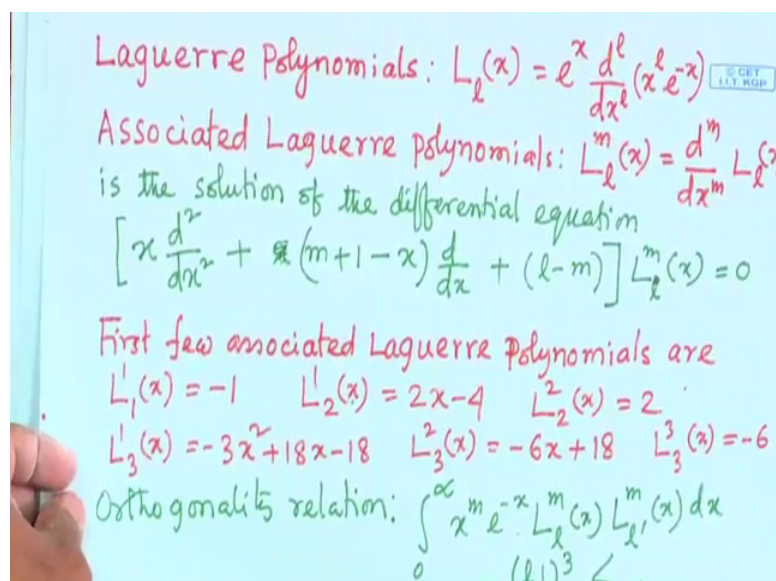 Laguerre Polynomials: L_l(x) = e^x d^l/dx^l (x^l e^-x)
© CET
I.I.T. KGP
Associated Laguerre polynomials: L_l^m(x) = d^m/dx^m L_l(x
is the solution of the differential equation
[x d²/dx² + (m+1-x) d/dx + (l-m)] L_l^m(x) = 0
First few associated Laguerre Polynomials are
L_1^1(x) = -1 L_2^1(x) = 2x-4 L_2^2(x) = 2
L_3^1(x) = -3x²+18x-18 L_3^2(x) = -6x+18 L_3^3(x) = -6
Orthogonality relation: ∫_0^∞ x^m e^-x L_l^m(x) L_l'^m(x) dx
(l!)^3